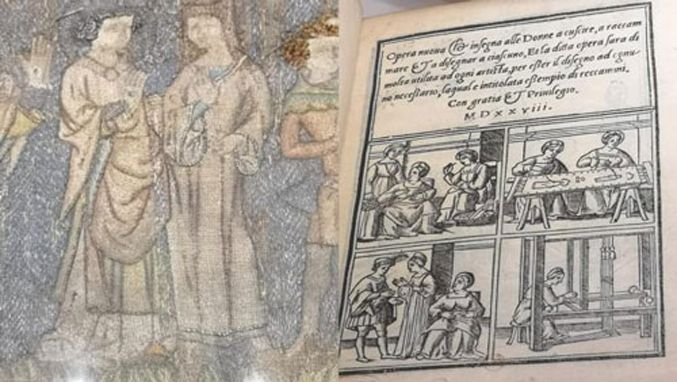 Opera nuova che insegna alle Donne a cuscire, a raccam
mare & a disegnar a ciascuno, Et la ditta opera sara di
molta utilita ad ogni artista, per esser il disegno ad ognu
no necessario, laqual e intitolata esempio di reccammi.
Con gratia & Privilegio.
MDXXVIII.